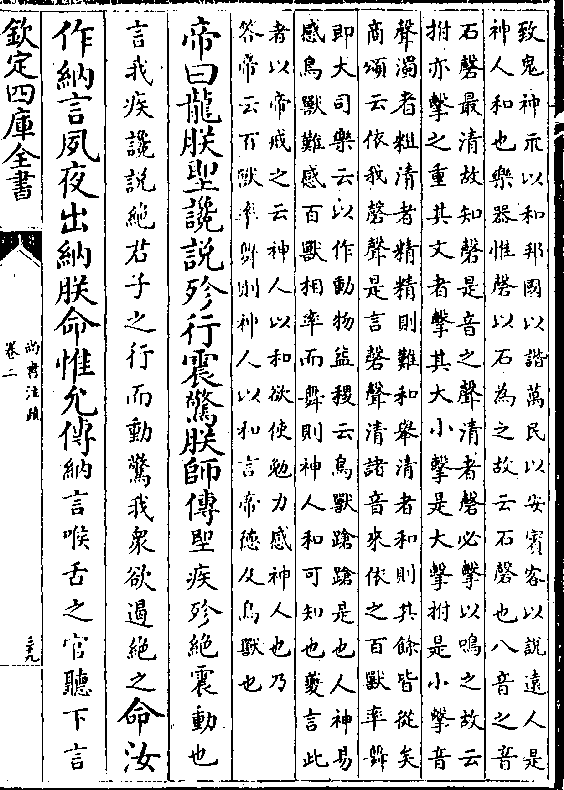 致鬼神示以和邦國以諧萬民以安賓客以說遠人是
神人和也樂器惟磬以石為之故云石磬也八音之音
石磬最清故知磬是音之聲清者磬必擊以鳴之故云
拊亦擊之重其文者擊其大小擊是大擊拊是小擊音
聲濁者粗清者精精則難和舉清者和則其餘皆從矣
商頌云依我磬聲是言磬聲清諸音來依之百獸率舞
即大司樂云以作動物益稷云鳥獸蹌蹌是也人神易
感鳥獸難感百獸相率而舞則神人和可知也夔言此
者以帝戒之云神人以和欲使勉力感神人也乃
答帝云百獸率舞則神人以和言帝德及鳥獸也
帝曰龍朕聖讒說殄行震驚朕師傳聖疾殄絕震動也
言我疾讒說絕君子之行而動驚我衆欲遏絕之命汝
作納言夙夜出納朕命惟允傳納言喉舌之官聽下言
欽定四庫全書
尚書注疏
卷二
三九